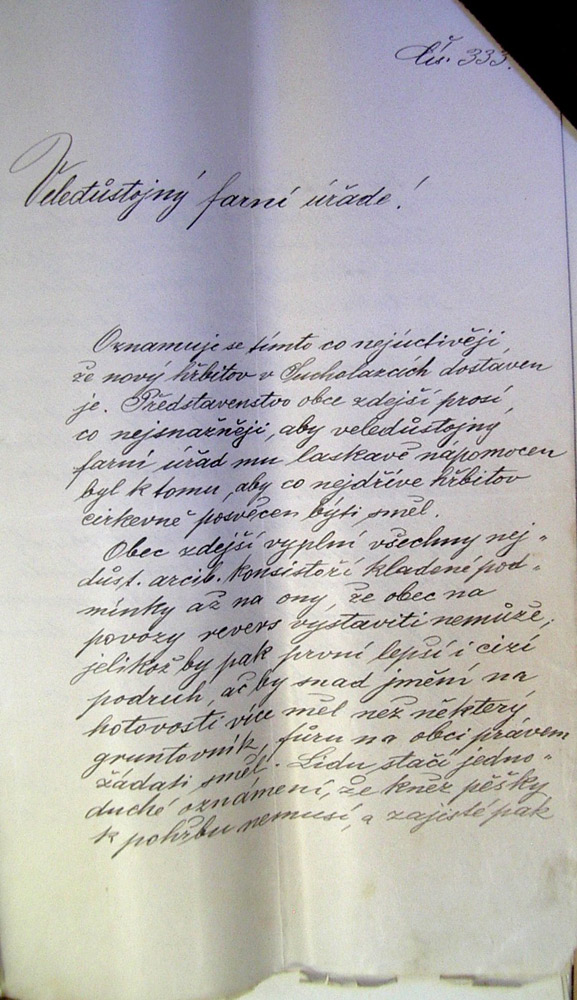 Čís. 333.
Veledůstojný farní úřade!
Oznamuje se tímto co nejúctivěji,
že nový hřbitov v Sucholazcách dostaven
je. Představenstvo obce zdejší prosí,
co nejsnažněji, aby veledůstojný
farní úřad mu laskavě nápomocen
byl k tomu, aby co nejdříve hřbitov
církevně posvěcen býti směl.
Obec zdejší vyplní všechny nej-
důst. arcib. konsistoří kladené pod-
mínky až na ony, že obec na
povozy revers vystaviti nemůže,
jelikož by pak první lepší i cizí
podruh, ač by snad jmění na
hotovosti více měl než některý
gruntovník, fůru na obci právem
žádati směl. Lidu stačí jedno-
duché oznámení, že kněz pěšky
k pohřbu nemusí, a zajisté pak